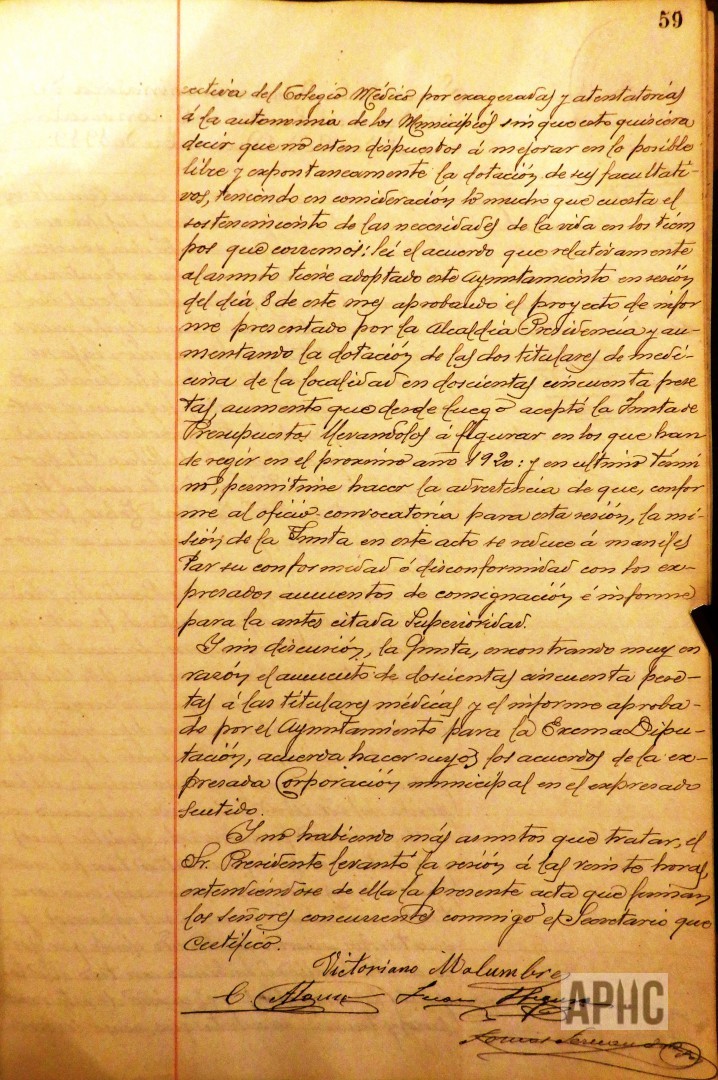 59
rectiva del Colegio Médico por exageradas y atentatorias
á la autonomia de los Municipios sin que esto quisiera
decir que no esten dispuestos á mejorar en lo posible
libre y expontaneamente la dotación de sus facultati-
vos, teniendo en consideración lo mucho que cuesta el
sostenimiento de las necesidades de la vida en los tiem
pos que corremos: leí el acuerdo que relativamente
al asunto tiene adoptado este Ayuntamiento en sesión
del día 8 de este mes aprobando el proyecto de infor
me presentado por la Alcaldia Presidencia y au-
mentando la dotación de las dos titulares de medi-
cina de la localidad en doscientas cincuenta pese
tas, aumento que desde luego aceptó la Junta de
Presupuestos llevandolos á figurar en los que han
de regir en el proximo año 1920: y en ultimo térmi
no, permitime hacer la advertencia de que, confor
me al oficio-convocatoria para esta sesión, la mi-
sión de la Junta en este acto se reduce á manifes
tar su conformidad ó disconformidad con los ex-
presados aumentos de consignación é informe
para la antes citada Superioridad.
Y sin discusión, la Junta, encontrando muy en
razón el aumento de doscientas cincuenta pese-
tas á las titulares médicas y el informe aproba-
do por el Ayuntamiento para la Excma Dipu-
tación, acuerda hacer suyos los acuerdos de la ex-
presada Corporación municipal en el expresado
sentido.
Y no habiendo más asuntos que tratar, el
Sr. Presidente levantó la sesión á las veinte horas,
extendiéndose de ella la presente acta que firman
los señores concurrentes conmigo el Secretario que
certifico.
Victoriano Malumbre
C.
Juan
APHC